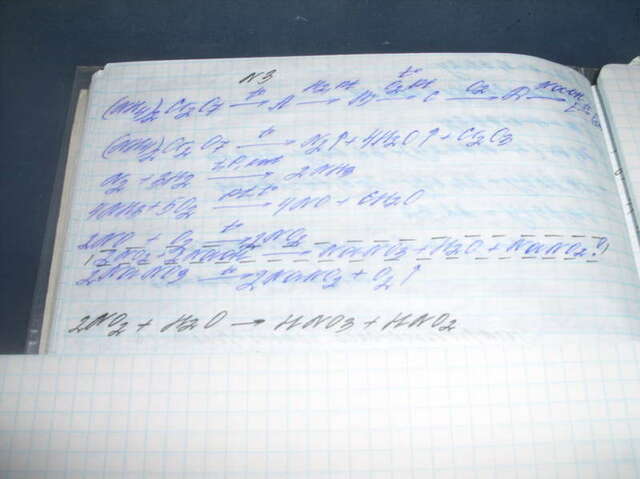 N3
(NH4)2Cr2O7 —t°→ A —H2, pt→ B —O2, pt, t°→ C —O2→ D —NaOH→
(NH4)2Cr2O7 —t°→ N2↑ + 4H2O↑ + Cr2O3
N2 + 3H2 —t, P, cat→ 2NH3
4NH3 + 5O2 —pt, t°→ 4NO + 6H2O
2NO + O2 —t°→ 2NO2
! 2NO2 + 2NaOH → NaNO3 + H2O + NaNO2 !
2NaNO3 —t°→ 2NaNO2 + O2↑
2NO2 + H2O → HNO3 + HNO2